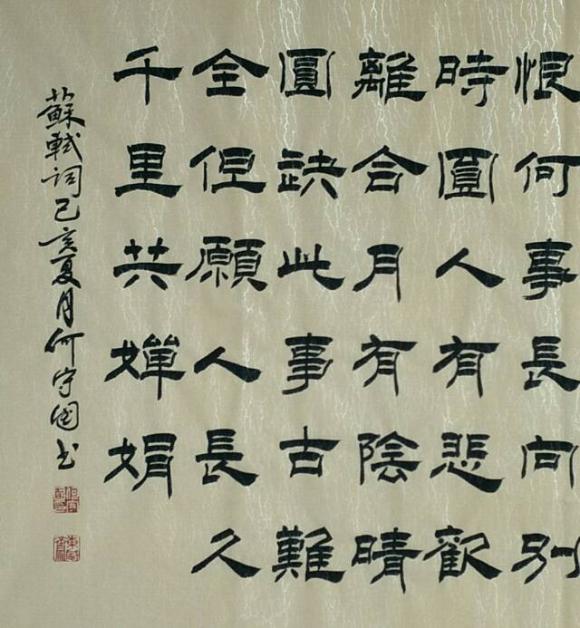 恨何事長向別
時圓人有悲歡
離合月有陰晴
圓缺此事古難
全但願人長久
千里共嬋娟
蘇軾詞己亥夏月何守國书